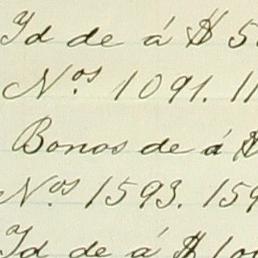 Id de á $ 5
Nos. 1091. 11
Bonos de á $
Nos. 1593. 159
Id de á $ 10